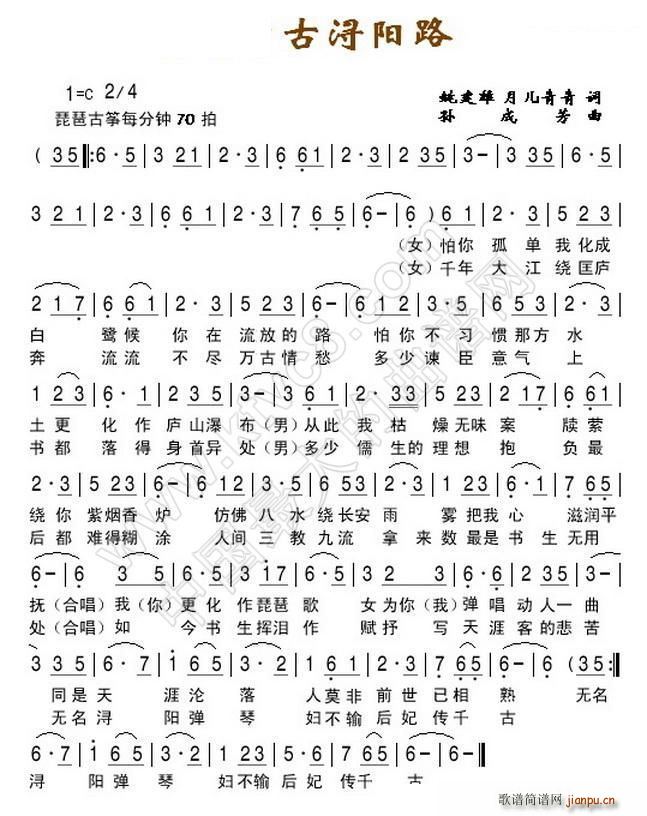 古浔阳路
1=C 2/4
姚建雄 月儿青青 词
琵琶古筝每分钟 70 拍
孙 成 芳 曲
( 3 5 ‖: 6·5 | 3 2 1 | 2·3 | 6 6 1 | 2·3 | 5 3 5 | 3- | 3 5 | 6·5 |
3 2 1 | 2·3 | 6 6 1 | 2·3 | 7 6 5 | 6- | 6 ) 6 1 | 2·3 | 5 2 3 |
(女) 怕你 孤 单 我 化成
(女) 千年 大 江 绕 匡庐
2 1 7 | 6 6 1 | 2·3 | 5 2 3 | 6- | 6 6 1 | 2·3 | 5 2 3 | 2·3 |
白 鹭候 你 在 流放的 路 怕 你 不 习 惯那 方 水
奔 流流 不 尽 万古情 愁 多 少 谏 臣 意气 上
1 2 3 | 6·5 | 3 5 2 3 | 5- | 5 3 5 | 6·5 | 3 2 3 | 2 1 7 | 6 6 1 |
土更 化 作 庐山瀑 布 (男) 从此 我 枯 燥无味 案 牍萦
书都 落 得 身首异 处 (男) 多少 儒 生的 理想 抱 负最
2·3 | 5 2 3 | 6- | 6 6 1 | 2·3 | 5 2 3 | 6·5 | 1 2 3 | 7 6 5 |
绕 你 紫烟香 炉 仿佛 八 水 绕长安 雨 雾 把我 心 滋润平
后 都 难得糊 涂 人间 三 教 九流 拿 来 数最 是 书 生 无用
6- | 6 3 5 | 6·5 | 3 2 3 | 1 3 5 | 2·3 | 6·5 | 3 2 3 | 1 3 5 |
抚 (合唱) 我 (你) 更 化 作琵琶 歌 女 为你 (我) 弹 唱 动人一 曲
处 (合唱) 如 今 书 生挥泪 作 赋 抒 写 天涯 客的悲 苦
2·3 | 3 5 | 6·7 | 1 6 5 | 3·2 | 3 3 5 | 2·1 | 7 6 5 | 6- | ( 3 5 :‖
同是 天 涯沦 落 人莫非 前 世 已相 熟 无名
无名 浔 阳弹 琴 妇不输 后 妃 传千 古
6·7 | 1 6 5 | 3·2 | 3 3 5 | 2·1 | 7 6 5 | 6- | 6- ‖
浔 阳弹 琴 妇不输 后 妃 传千 古
www.ktvc8.com
中国最大的曲谱网
歌谱简谱网
jianpu.cn